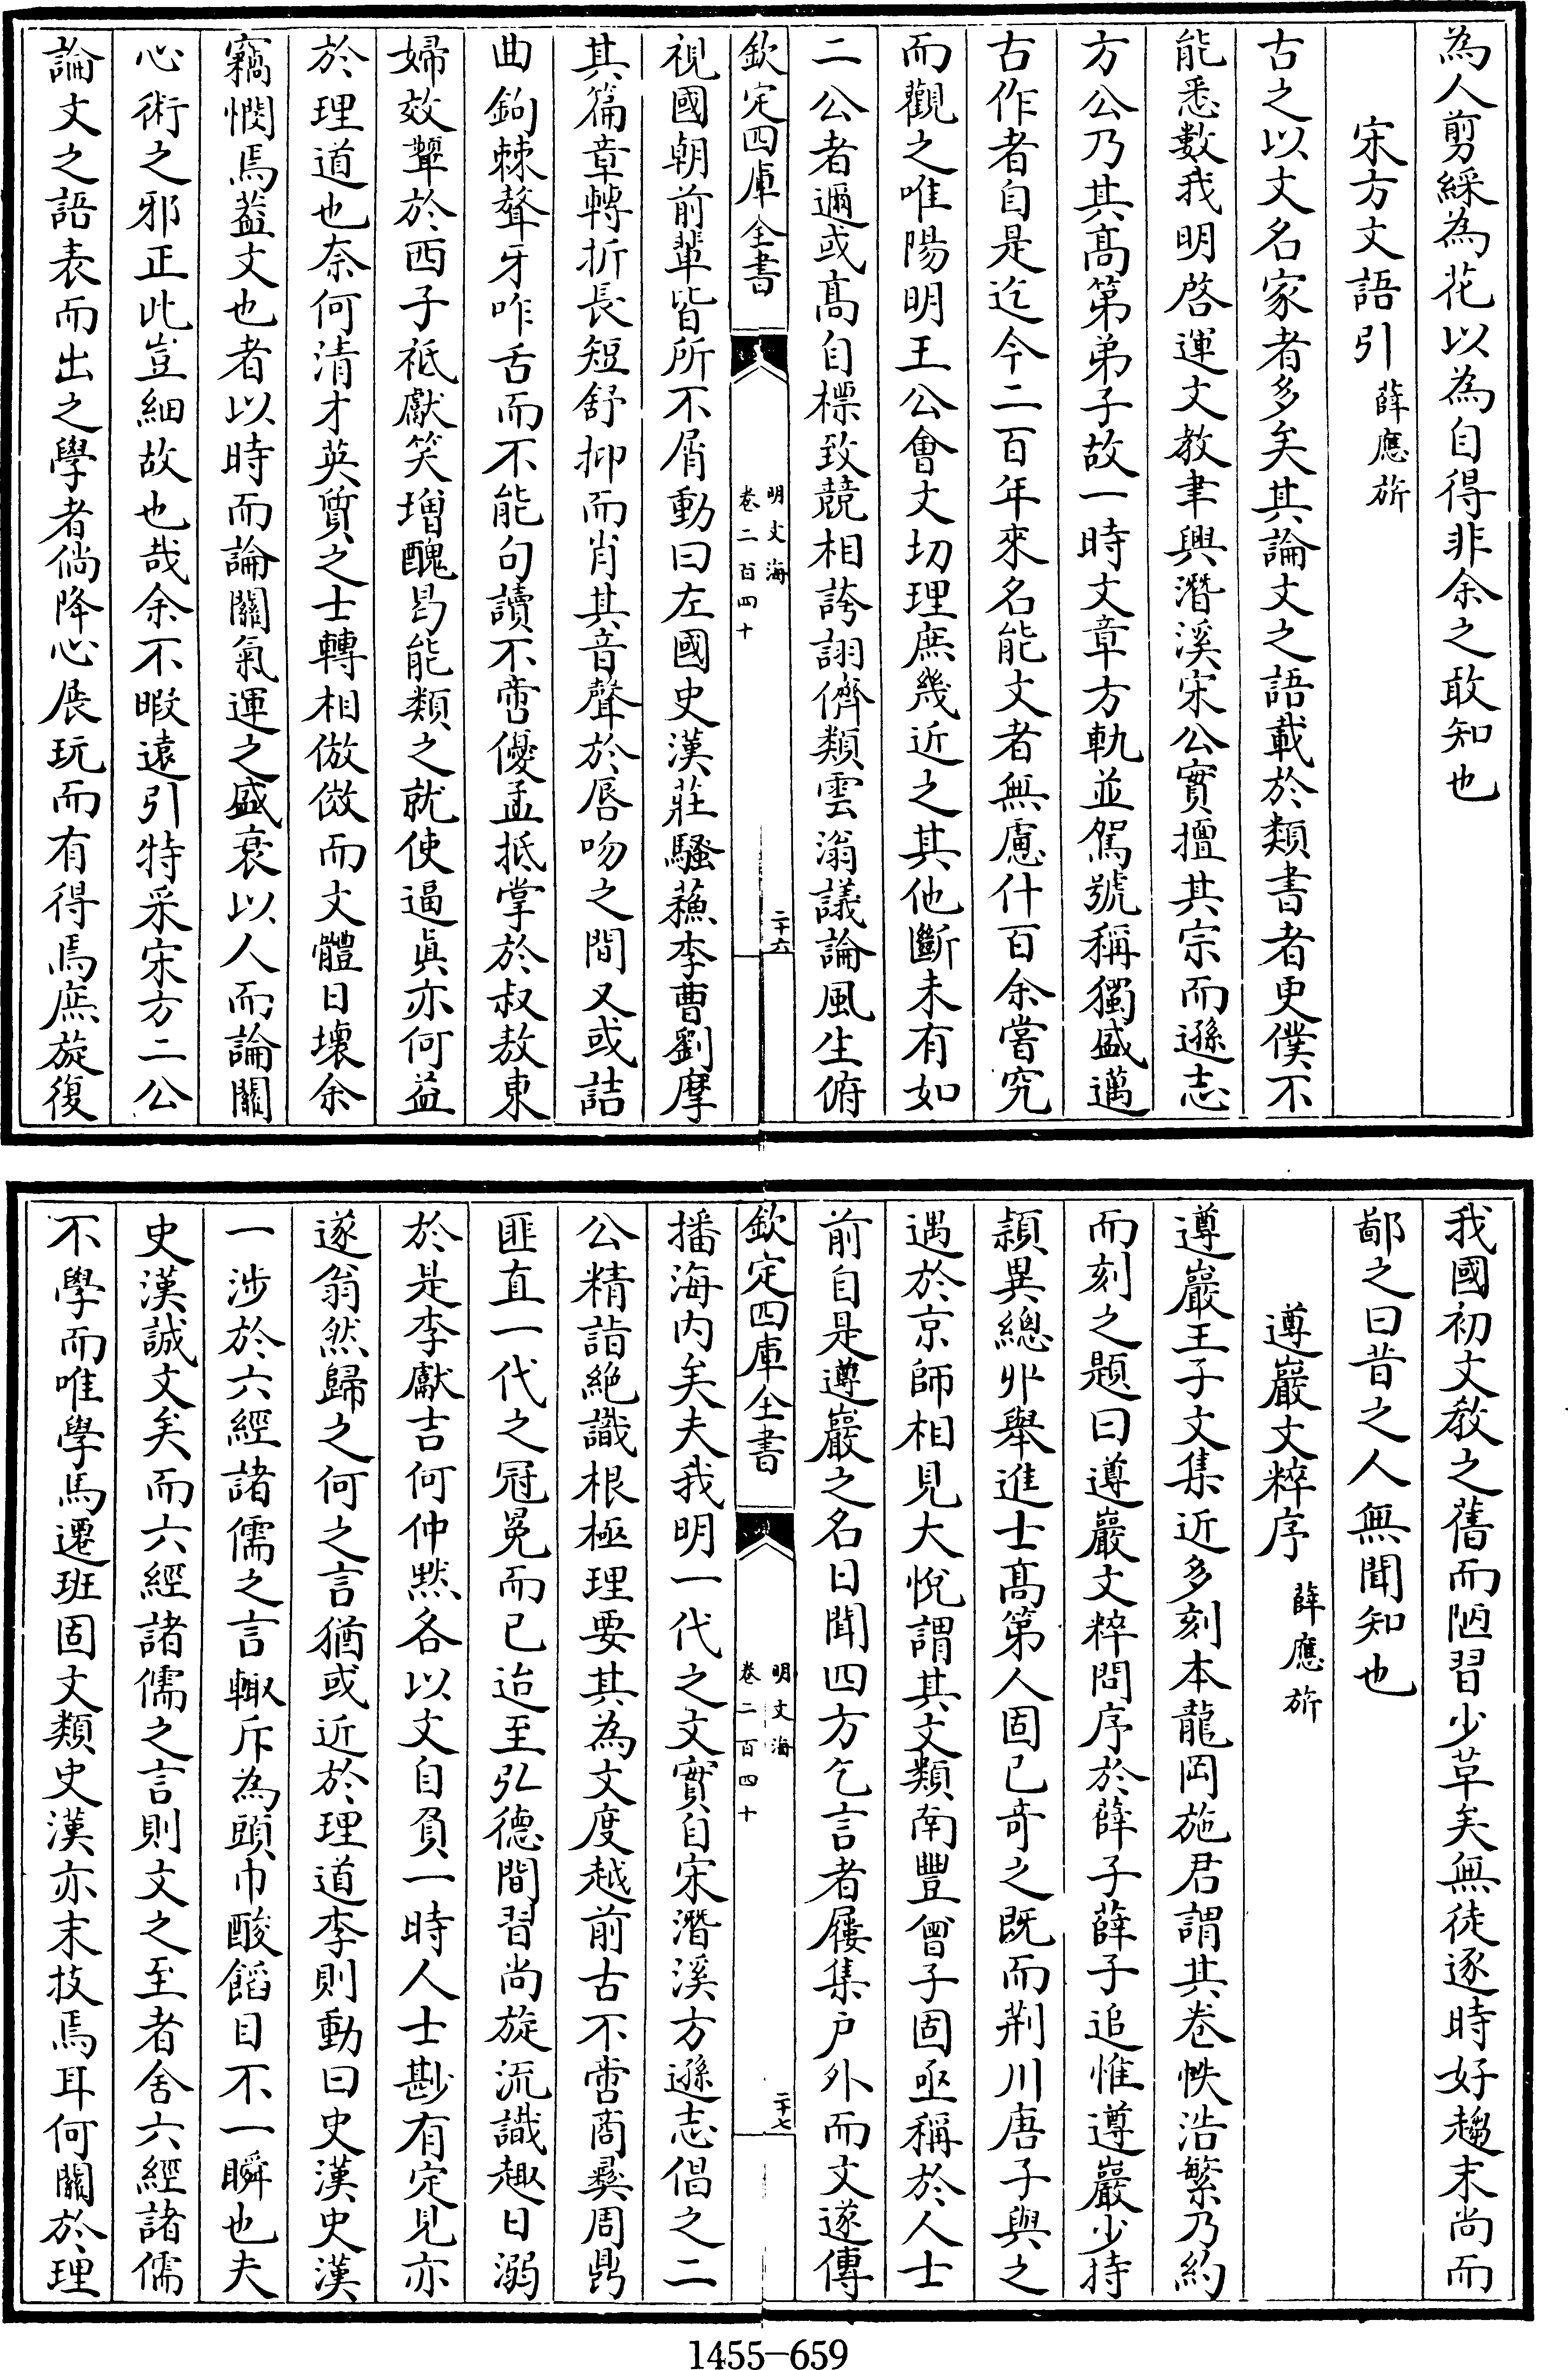 為人剪綵為花以為自得非余之敢知也
宋方文語引 薛應旂
古之以文名家者多矣其論文之語載於類書者更僕不
能悉數我明啓運文教聿興潛溪宋公實擅其宗而遜志
方公乃其髙第弟子故一時文章方軌並駕號稱獨盛邁
古作者自是迄今二百年來名能文者無慮什百余嘗究
而觀之唯陽明王公會文切理庶幾近之其他斷未有如
二公者邇或髙自標致競相誇詡儕類雲滃議論風生俯
欽定四庫全書
明文海
卷二百四十
二十六
視國朝前輩皆所不屑動曰左國史漢莊騷蘓李曹劉摩
其篇章轉折長短舒抑而肖其音聲於唇吻之間又或詰
曲鉤棘聱牙咋舌而不能句讀不啻優孟抵掌於叔敖東
婦效顰於西子祗獻笑增醜曷能類之就使逼真亦何益
於理道也奈何清才英質之士轉相倣傚而文體日壞余
竊憫焉葢文也者以時而論關氣運之盛衰以人而論關
心術之邪正此豈細故也哉余不暇遠引特采宋方二公
論文之語表而出之學者倘降心展玩而有得焉庶旋復
我國初文教之舊而陋習少革矣無徒逐時好趨末尚而
鄙之曰昔之人無聞知也
遵巖文粹序 薛應旂
遵巖王子文集近多刻本龍岡施君謂其卷帙浩繁乃約
而刻之題曰遵巖文粹問序於薛子薛子追惟遵巖少持
頴異總丱舉進士髙第人固已奇之既而荆川唐子與之
遇於京師相見大悅謂其文類南豐曾子固亟稱於人士
前自是遵巖之名日聞四方乞言者屨集户外而文遂傳
欽定四庫全書
明文海
卷二百四十
二十七
播海内矣夫我明一代之文實自宋潛溪方遜志倡之二
公精詣絶識根極理要其為文度越前古不啻商彞周鼎
匪直一代之冠冕而已迨至弘德間習尚旋流識趣日溺
於是李獻吉何仲黙各以文自負一時人士尠有定見亦
遂翁然歸之何之言猶或近於理道李則動曰史漢史漢
一涉於六經諸儒之言輙斥為頭巾酸餡目不一瞬也夫
史漢誠文矣而六經諸儒之言則文之至者舍六經諸儒
不學而唯學馬遷班固文類史漢亦末技焉耳何關於理
1455-659